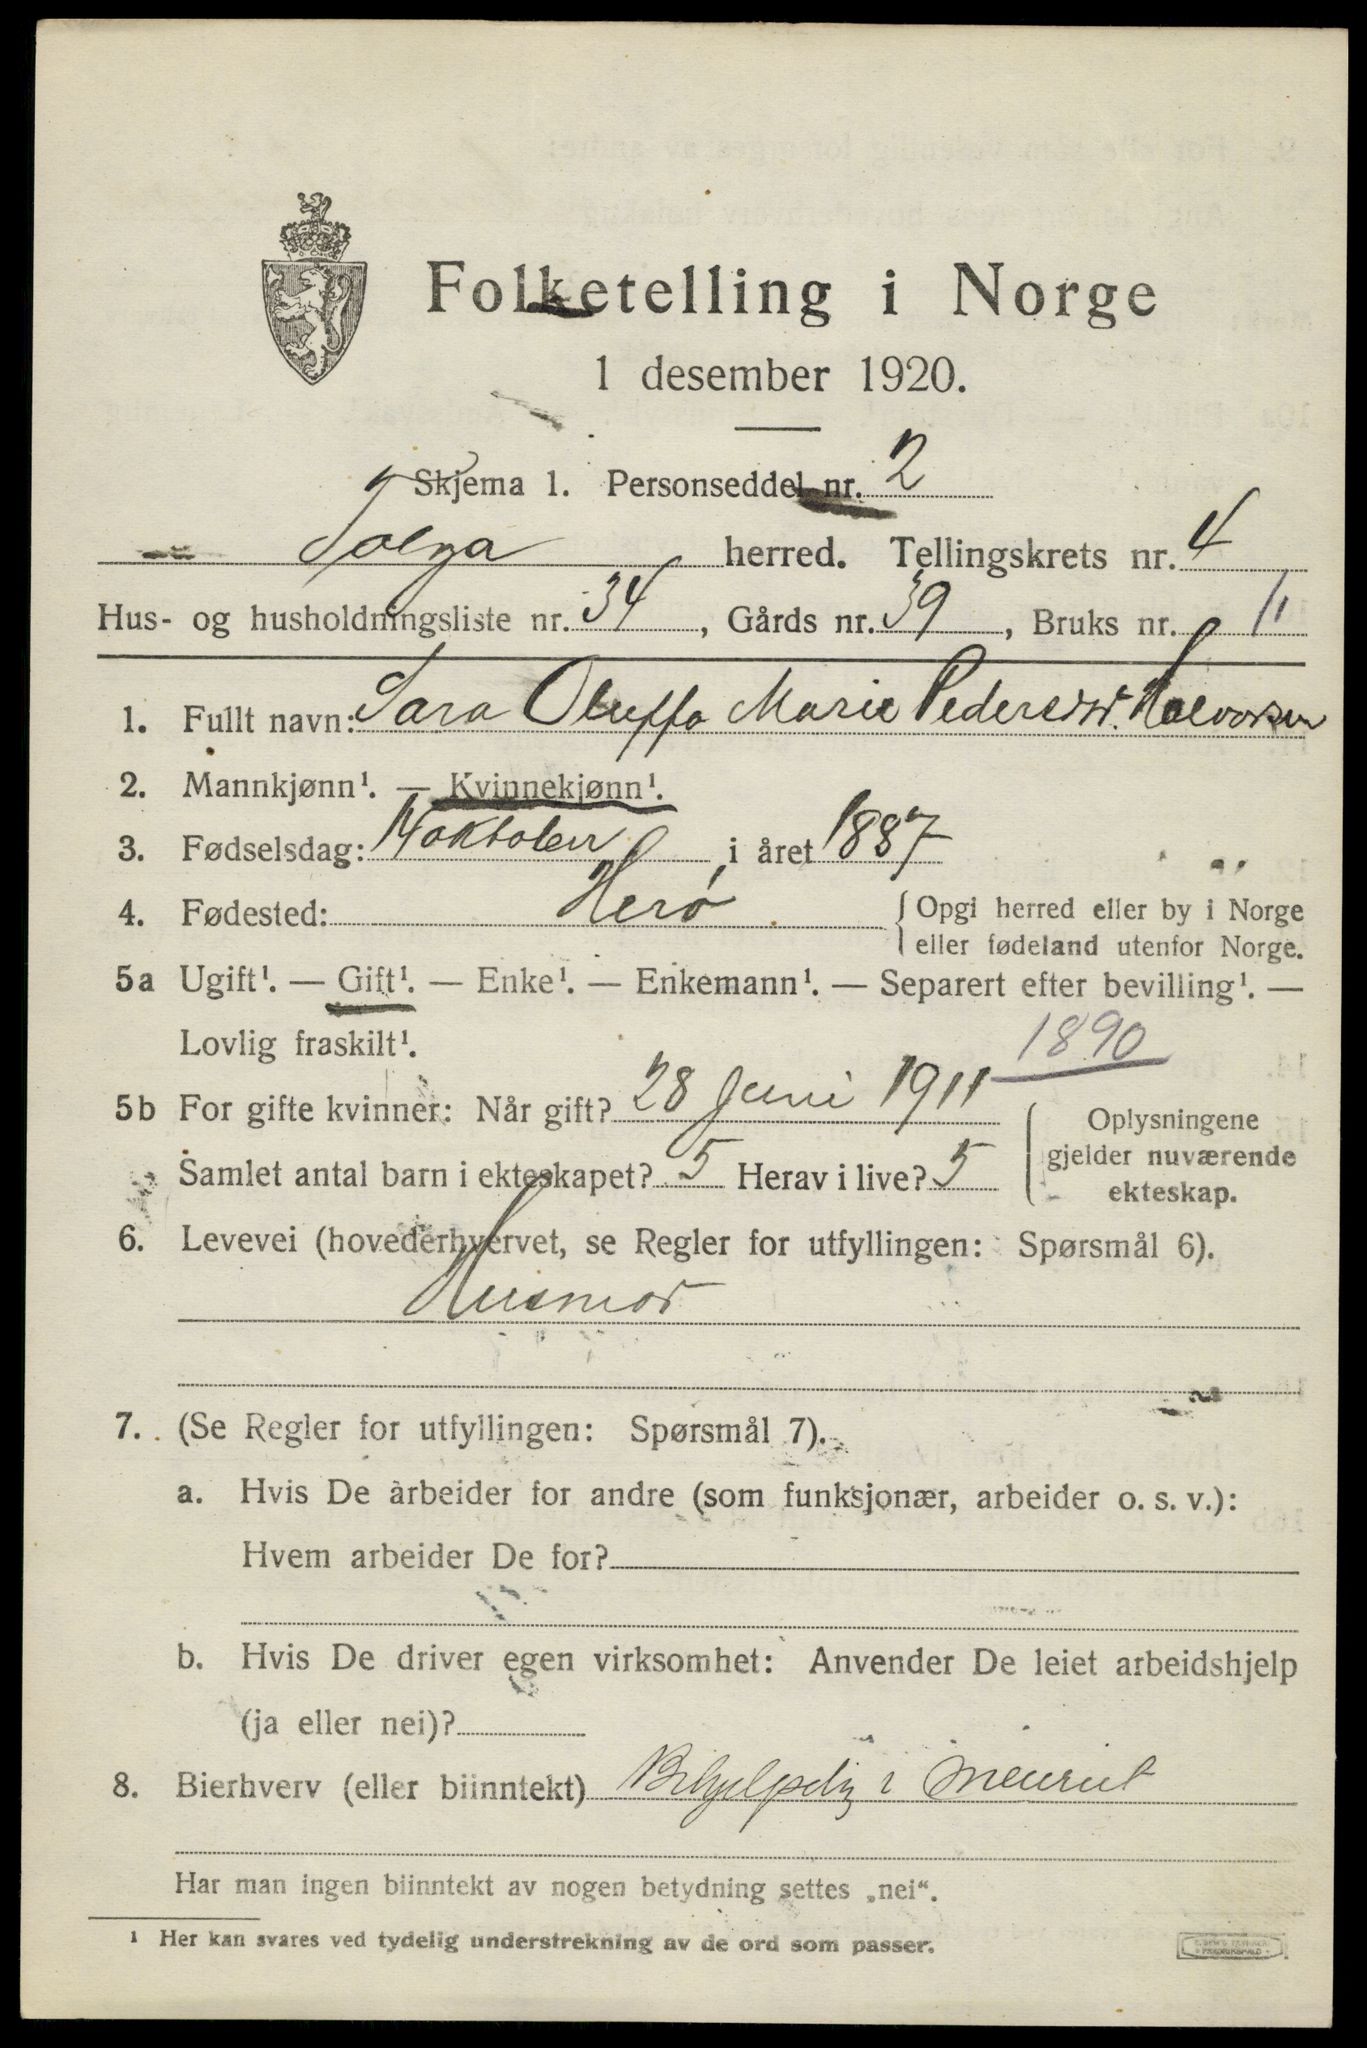 Folketelling i Norge
1 desember 1920.
Skjema 1. Personseddel nr. 2
Tolga herred. Tellingskrets nr. 4
Hus- og husholdningsliste nr. 34, Gårds nr. 39, Bruks nr. 11
1. Fullt navn: Sara Oluffa Marie Pedersdtr. Halvorsen
2. Mannkjønn¹. — Kvinnekjønn¹.
3. Fødselsdag: 14 oktober, i året 1887
4. Fødested: Herø { Opgi herred eller by i Norge
eller fødeland utenfor Norge.
5a Ugift¹. — Gift¹. — Enke¹. — Enkemann¹. — Separert efter bevilling¹. —
Lovlig fraskilt¹.
1890
5b For gifte kvinner: Når gift? 28 Juni 1911
Samlet antal barn i ekteskapet? 5 Herav i live? 5
Oplysningene
gjelder nuværende
ekteskap.
6. Levevei (hovederhvervet, se Regler for utfyllingen: Spørsmål 6).
Husmor
7. (Se Regler for utfyllingen: Spørsmål 7).
a. Hvis De arbeider for andre (som funksjonær, arbeider o. s. v.):
Hvem arbeider De for?
b. Hvis De driver egen virksomhet: Anvender De leiet arbeidshjelp
(ja eller nei)?
8. Bierhverv (eller biinntekt) i
Har man ingen biinntekt av nogen betydning settes „nei“.
¹ Her kan svares ved tydelig understrekning av de ord som passer.